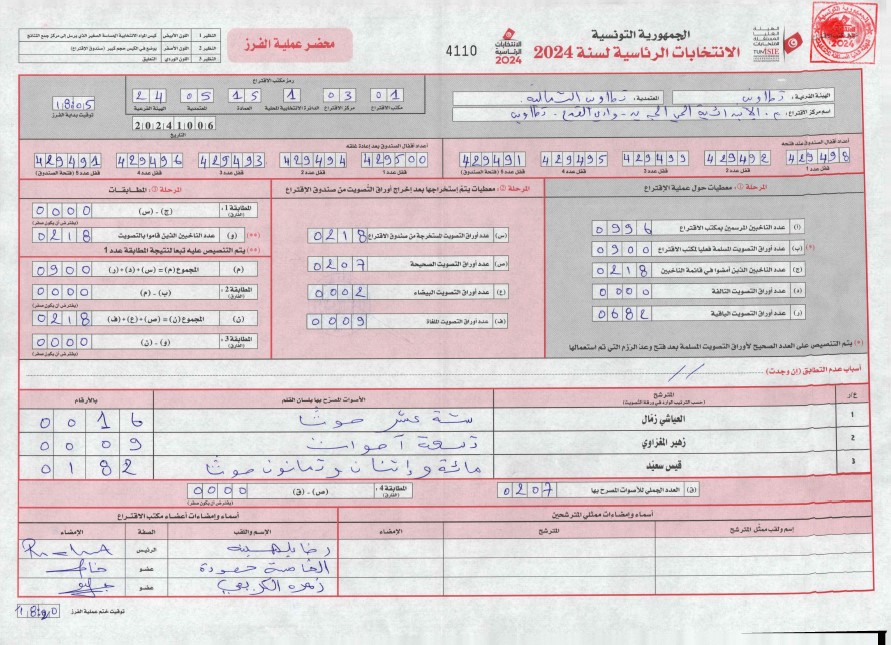 الجمهورية التونسية
الانتخابات الرئاسية لسنة 2024
الهيئة العليا المستقلة للانتخابات
TUNISIE
الانتخابات الرئاسية 2024
4110
محضر عملية الفرز
النظير 1 اللون الأبيض
النظير 2 اللون الأصفر
النظير 3 اللون الوردي التعليق
الهيئة الفرعية: تطاوين المعتمدية: تطاوين الشمالية
اسم مركز الإقتراع:
رمز مكتب الإقتراع
01 03 1 15 05 24
مكتب الإقتراع مركز الإقتراع الدائرة الانتخابية المحلية العمادة المعتمدية الهيئة الفرعية
20241006
التاريخ
18:05
توقيت بداية الفرز
أعداد أقفال الصندوق عند فتحه
429498 429492 429499 429495 429491
قفل عدد 1 قفل عدد 2 قفل عدد 3 قفل عدد 4 قفل عدد 5 (فتحة الصندوق)
أعداد أقفال الصندوق بعد إعادة غلقه
429500 429494 429493 429496 429491
قفل عدد 1 قفل عدد 2 قفل عدد 3 قفل عدد 4 قفل عدد 5 (فتحة الصندوق)
المرحلة ①: معطيات حول عملية الإقتراع
(أ) عدد الناخبين المرسمين بمكتب الاقتراع 0996
(ب) عدد أوراق التصويت المسلمة فعليا لمكتب الاقتراع 0900
(ج) عدد الناخبين الذين أمضوا في قائمة الناخبين 0218
(د) عدد أوراق التصويت التالفة 0000
(ر) عدد أوراق التصويت الباقية 0682
(*) يتم التنصيص على العدد الصحيح لأوراق التصويت المسلمة بعد فتح وعد الرزم التي تم استعمالها
المرحلة ②: معطيات يتم إستخراجها بعد إخراج أوراق التصويت من صندوق الإقتراع
(س) عدد أوراق التصويت المستخرجة من صندوق الاقتراع 0218
(ص) عدد أوراق التصويت الصحيحة 0207
(ع) عدد أوراق التصويت البيضاء 0002
(ف) عدد أوراق التصويت الملغاة 0009
المرحلة ③: المطابقات
المطابقة 1: (الفارق) (ج) - (س) 0000
(يفترض أن يكون صفر)
(**) (و) عدد الناخبين الذين قاموا بالتصويت 0218
(**) يتم التنصيص عليه تبعا لنتيجة المطابقة عدد 1
(م) المجموع (م) = (س) + (د) + (ر) 0900
المطابقة 2: (الفارق) (ب) - (م) 0000
(يفترض أن يكون صفر)
(ن) المجموع (ن) = (ص) + (ع) + (ف) 0218
المطابقة 3: (الفارق) (و) - (ن) 0000
(يفترض أن يكون صفر)
أسباب عدم التطابق (إن وجدت) //
ع/ر المترشح (حسب الترتيب الوارد في ورقة التصويت) الأصوات المصرح بها بلسان القلم بالأرقام
1 العياشي زمال ستة عشر صوتا 0016
2 زهير المغزاوي تسعة أصوات 0009
3 قيس سعيد مائة وإثنان وثمانون صوتا 0182
(ق) العدد الجملي للأصوات المصرح بها 0207
المطابقة 4: (الفارق) (ص) - (ق) 0000
(يفترض أن يكون صفر)
أسماء وإمضاءات ممثلي المترشحين
إسم ولقب ممثل المترشح المترشح الإمضاء
أسماء وإمضاءات أعضاء مكتب الاقتراع
الإسم واللقب الصفة الإمضاء
الرئيس
عضو
عضو
توقيت ختم عملية الفرز